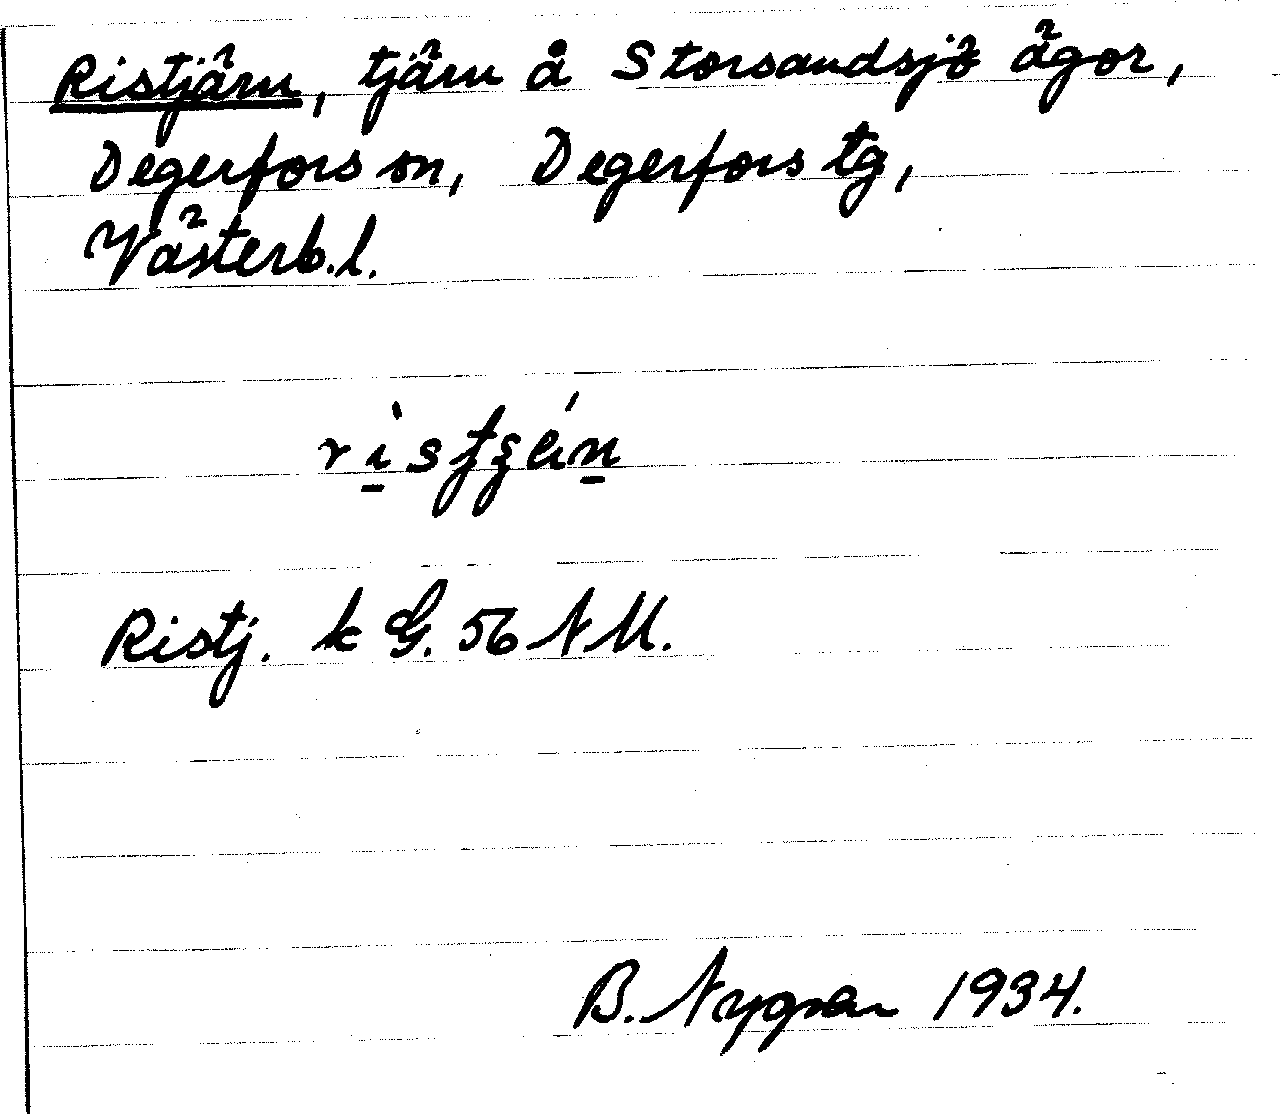 Ristjärn, tjärn å Storsandsjö ägor,
Degerfors sn, Degerfors tg,
Västerb.l.
Ristj. k G. 56 NM.
B. Nygren 1934.